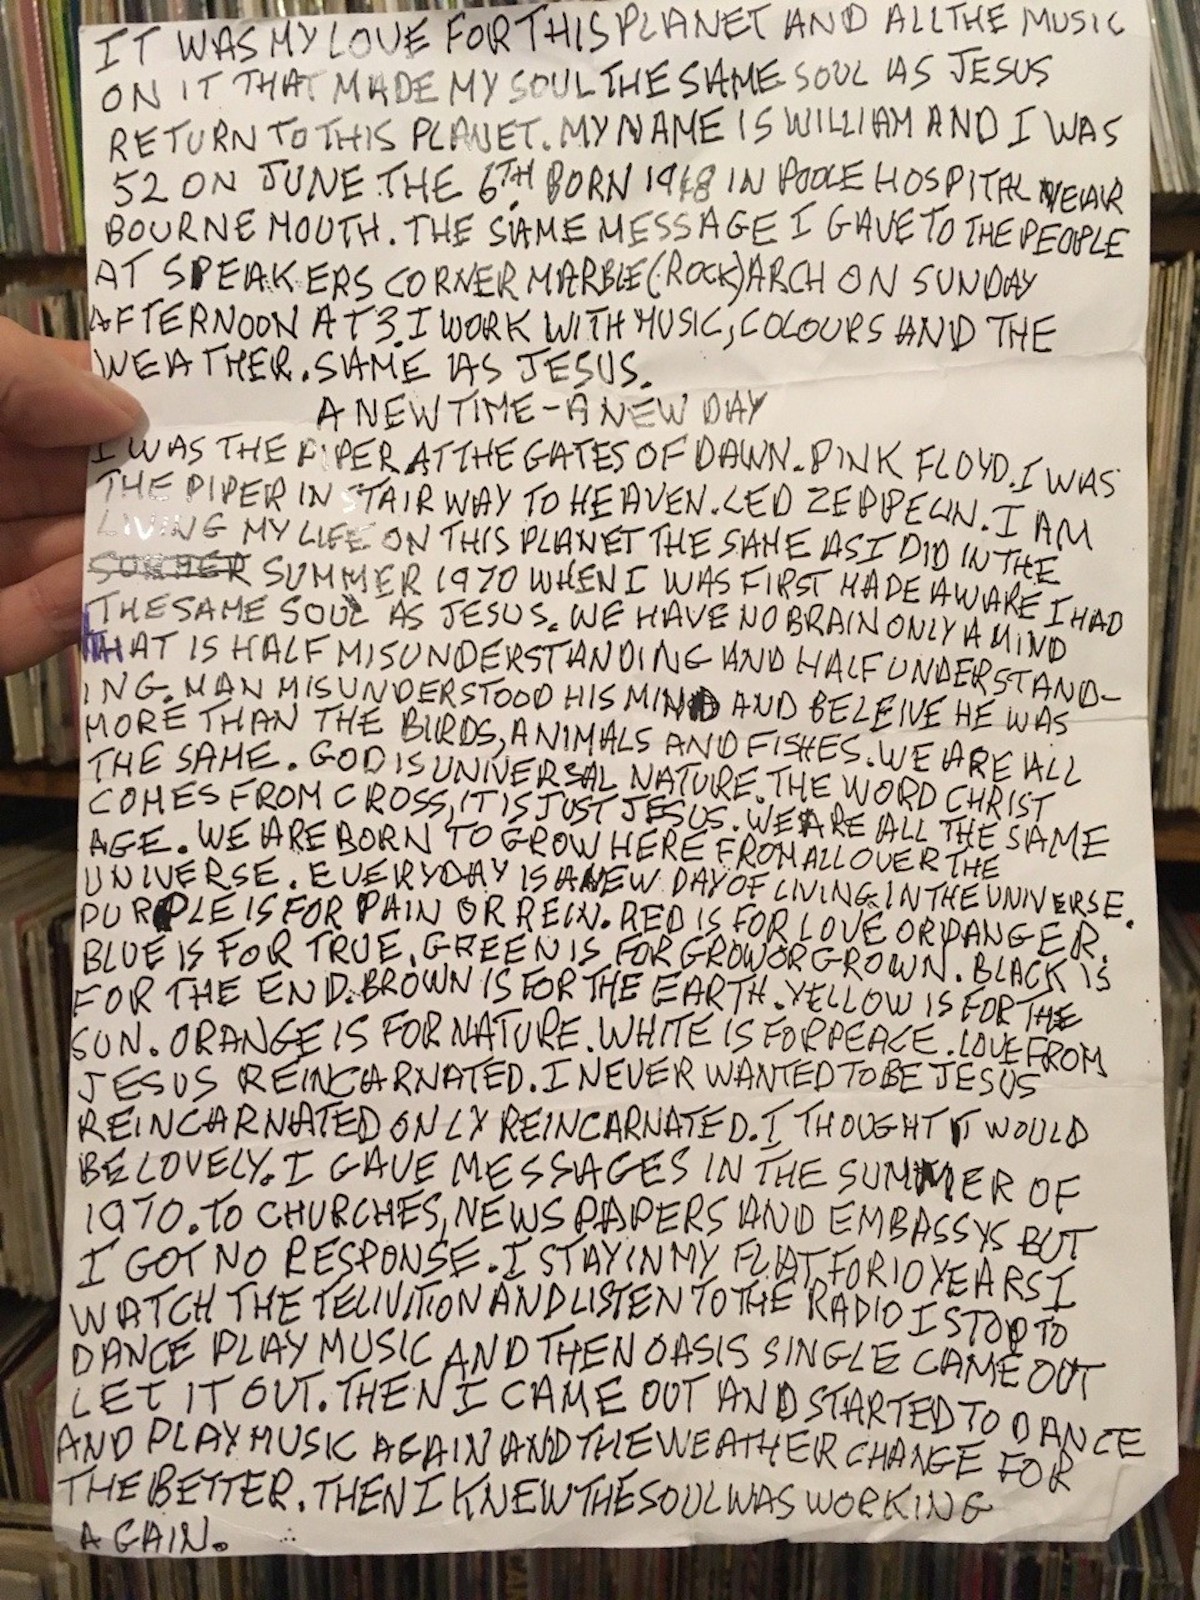 IT WAS MY LOVE FOR THIS PLANET AND ALL THE MUSIC
ON IT THAT MADE MY SOUL THE SAME SOUL AS JESUS
RETURN TO THIS PLANET. MY NAME IS WILLIAM AND I WAS
52 ON JUNE THE 6TH. BORN 1948 IN POOLE HOSPITAL NEAR
BOURNEMOUTH. THE SAME MESSAGE I GAVE TO THE PEOPLE
AT SPEAKERS CORNER MARBLE (ROCK) ARCH ON SUNDAY
AFTERNOON AT 3. I WORK WITH MUSIC, COLOURS AND THE
WEATHER. SAME AS JESUS.
A NEW TIME - A NEW DAY
I WAS THE PIPER AT THE GATES OF DAWN. PINK FLOYD. I WAS
THE PIPER IN STAIRWAY TO HEAVEN. LED ZEPPELIN. I AM
LIVING MY LIFE ON THIS PLANET THE SAME AS I DID IN THE
SUMMER 1970 WHEN I WAS FIRST MADE AWARE I HAD
THE SAME SOUL AS JESUS. WE HAVE NO BRAIN ONLY A MIND
THAT IS HALF MISUNDERSTANDING AND HALF UNDERSTAND-
ING. MAN MISUNDERSTOOD HIS MIND AND BELEIVE HE WAS
MORE THAN THE BIRDS, ANIMALS AND FISHES. WE ARE ALL
THE SAME. GOD IS UNIVERSAL NATURE. THE WORD CHRIST
COMES FROM CROSS, IT IS JUST JESUS. WE ARE ALL THE SAME
AGE. WE ARE BORN TO GROW HERE FROM ALL OVER THE
UNIVERSE. EVERYDAY IS A NEW DAY OF LIVING IN THE UNIVERSE.
PURPLE IS FOR PAIN OR REIN. RED IS FOR LOVE OR DANGER.
BLUE IS FOR TRUE. GREEN IS FOR GROW OR GROWN. BLACK IS
FOR THE END. BROWN IS FOR THE EARTH. YELLOW IS FOR THE
SUN. ORANGE IS FOR NATURE. WHITE IS FOR PEACE. LOVE FROM
JESUS REINCARNATED. I NEVER WANTED TO BE JESUS
REINCARNATED ONLY REINCARNATED. I THOUGHT IT WOULD
BE LOVELY. I GAVE MESSAGES IN THE SUMMER OF
1970. TO CHURCHES, NEWSPAPERS AND EMBASSYS BUT
I GOT NO RESPONSE. I STAY IN MY FLAT FOR 10 YEARS I
WATCH THE TELIVITION AND LISTEN TO THE RADIO I STOP TO
DANCE PLAY MUSIC AND THEN OASIS SINGLE CAME OUT
LET IT OUT. THEN I CAME OUT AND STARTED TO DANCE
AND PLAY MUSIC AGAIN AND THE WEATHER CHANGE FOR
THE BETTER. THEN I KNEW THE SOUL WAS WORKING
AGAIN.